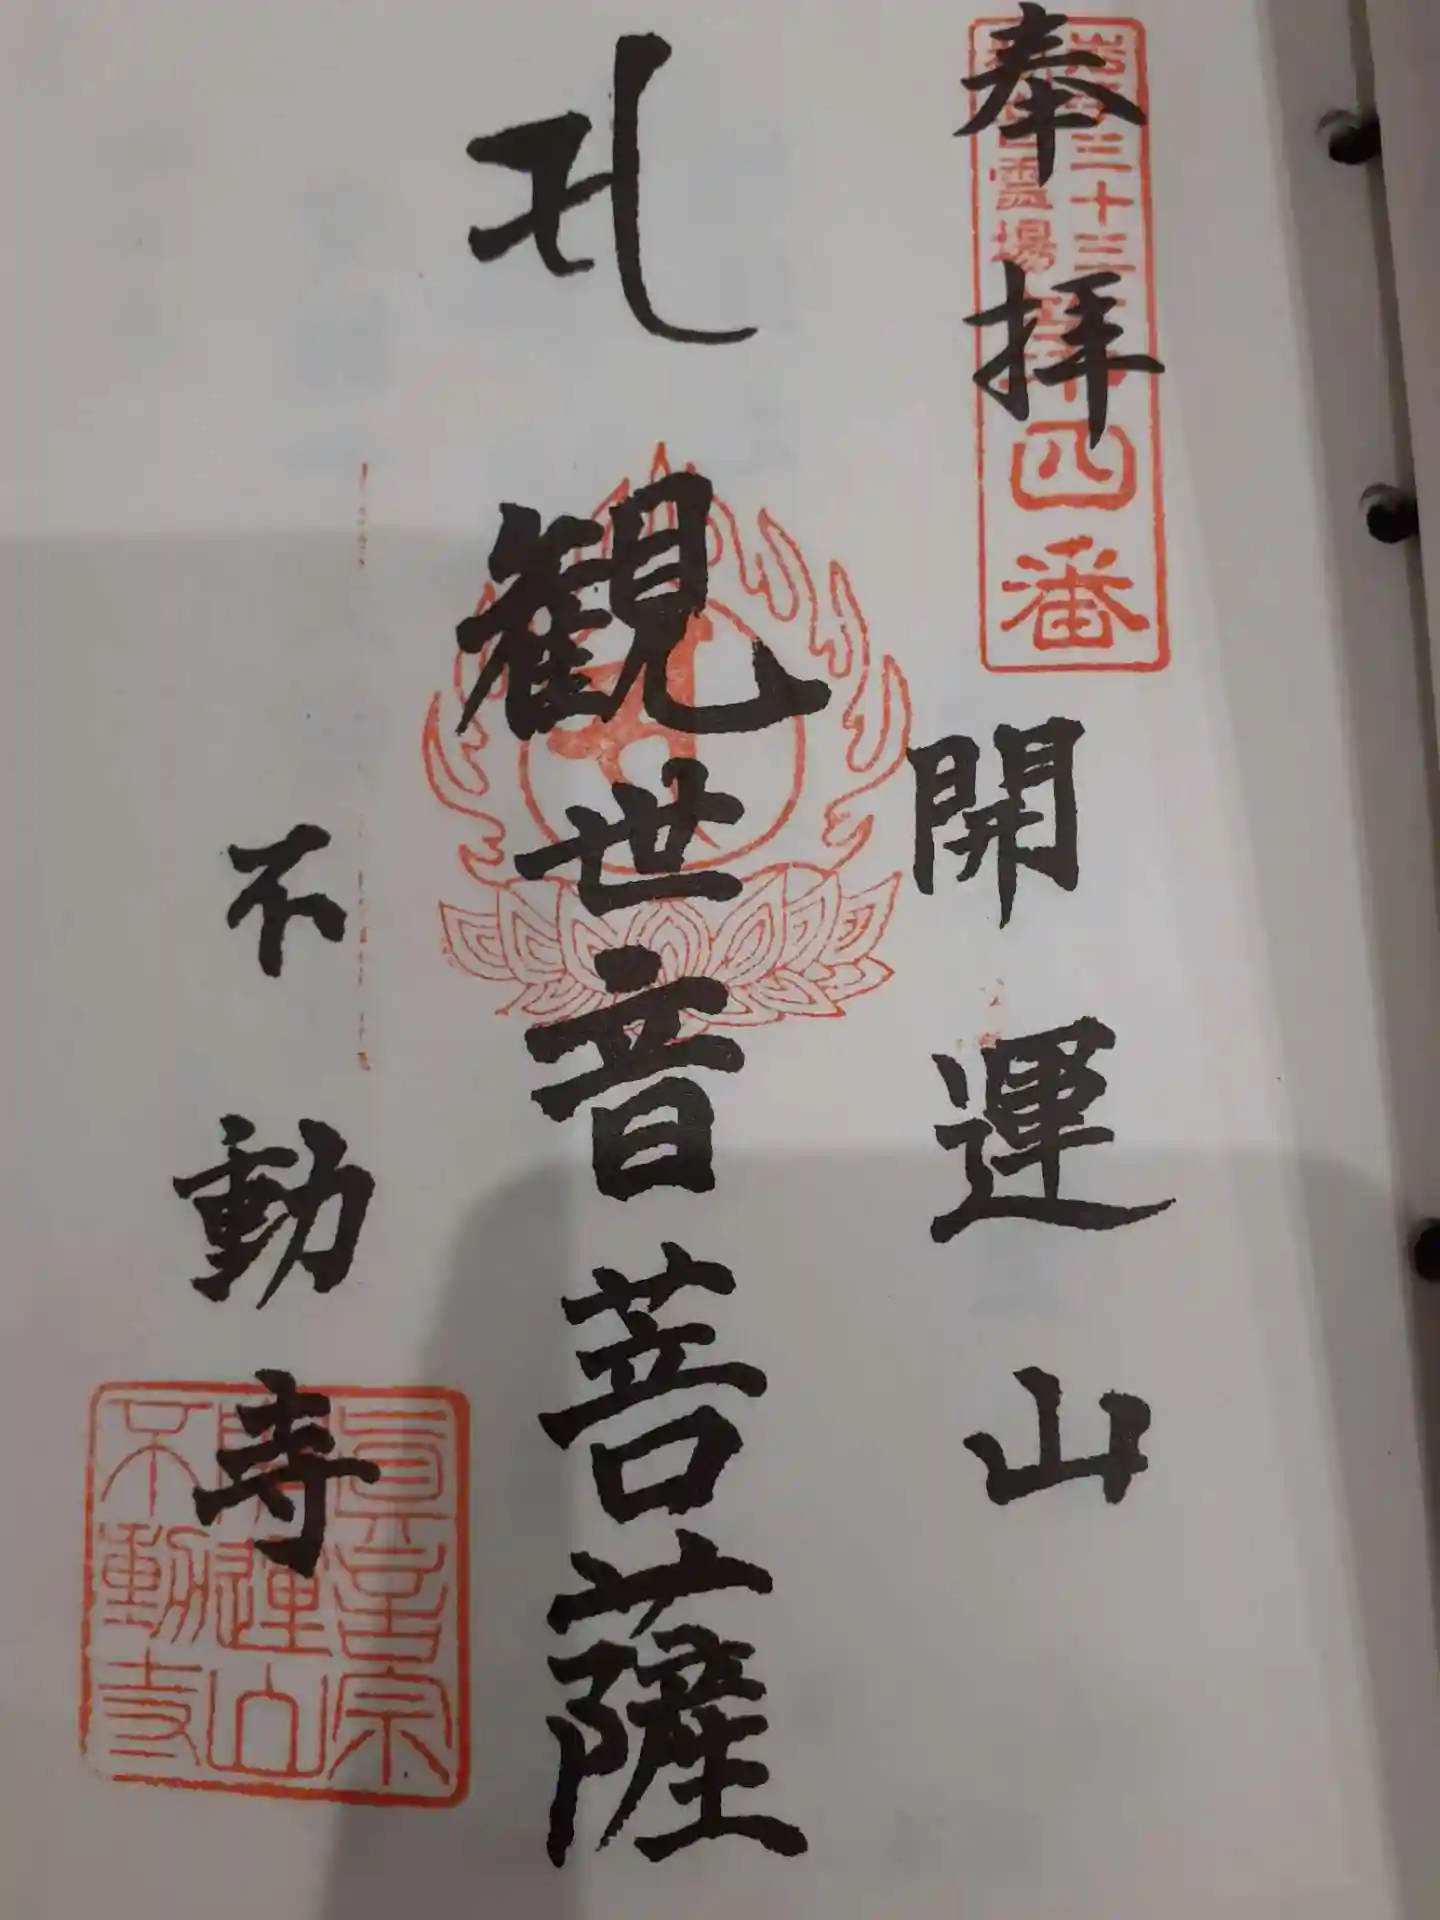 奉拝
三十三
霊場
四番
開運山
観世音菩薩
不動寺
真言宗
開運山
不動寺